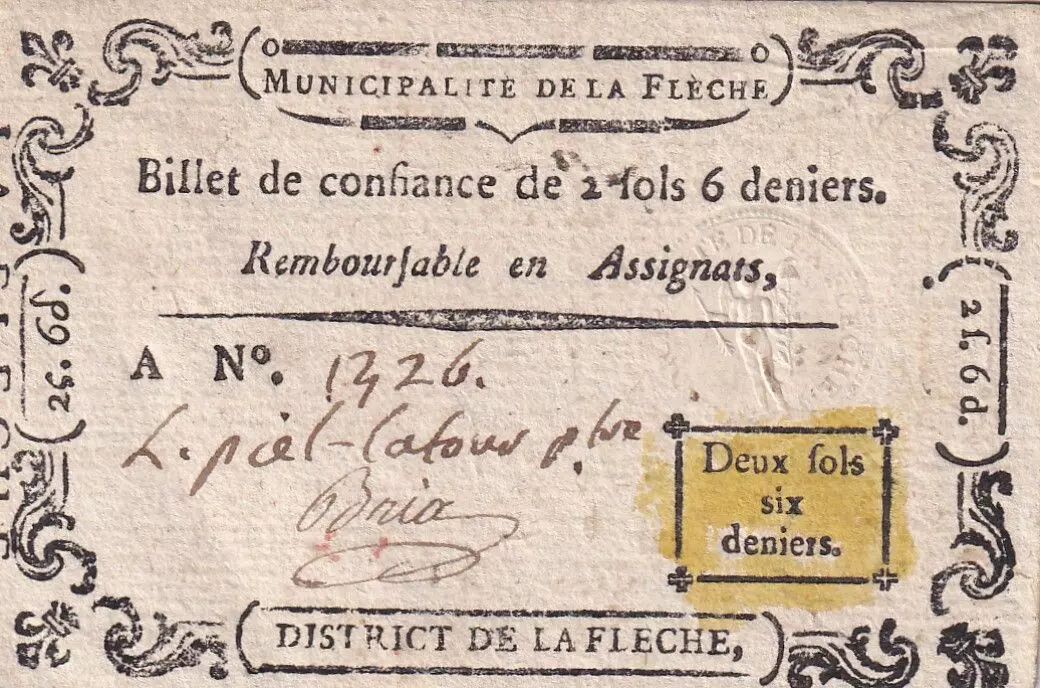 MUNICIPALITÉ DE LA FLÈCHE
Billet de confiance de 2 ſols 6 deniers.
Rembourſable en Assignats,
A Nº. 1326.
L. piel-latour pbre
Deux ſols
six
deniers.
DISTRICT DE LA FLECHE,
2ſ. 6d.
2ſ. 6d.